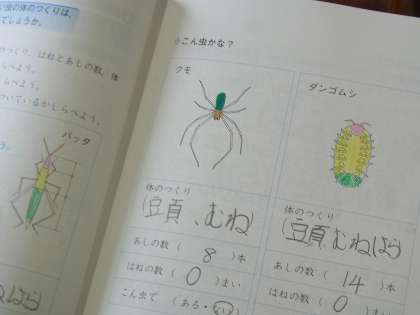 い虫の体のつくりは、
でしょうか。
つくり、はねとあしの数、体
らべよう。
しらべよう。
ついているかしらべよう。
う。
バッタ
はら
こん虫かな？
クモ
体のつくり
(豆頁、むね)
あしの数 ( 8 )本
はねの数 ( 0 )まい
こん虫で (ある・ない)
ダンゴムシ
体のつくり
(豆頁、むねはら)
あしの数 ( 14 )本
はねの数 ( 0 )まい